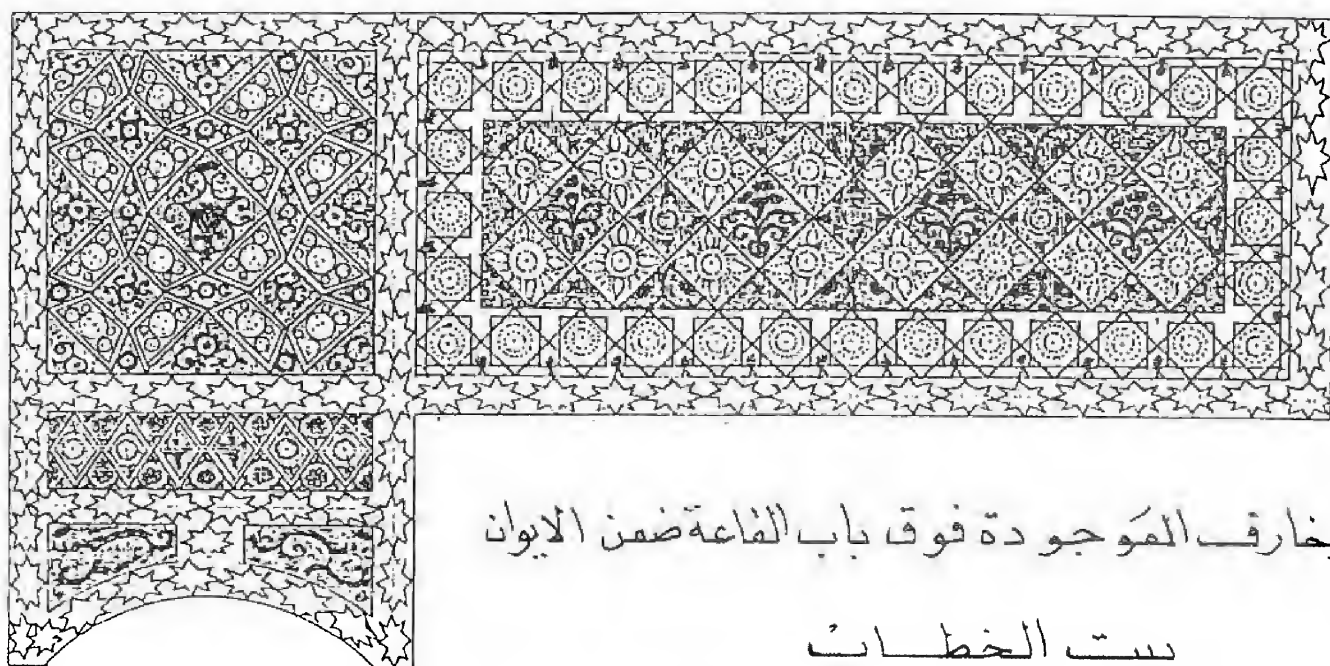 خارف المَوجودة فوق باب القاعة ضمن الايوان
بيت